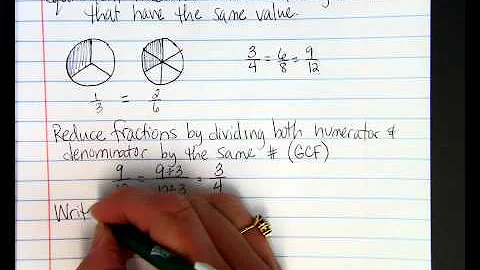 that have the same value.
3/4 = 6/8 = 9/12
1/3 = 2/6
Reduce fractions by dividing both numerator &
denominator by the same # (GCF)
9/12 = 9÷3/12÷3 = 3/4
Writ